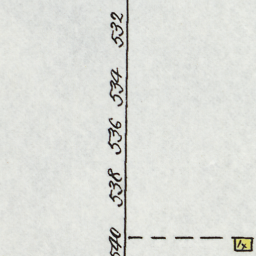 532
534
536
538
540
1x